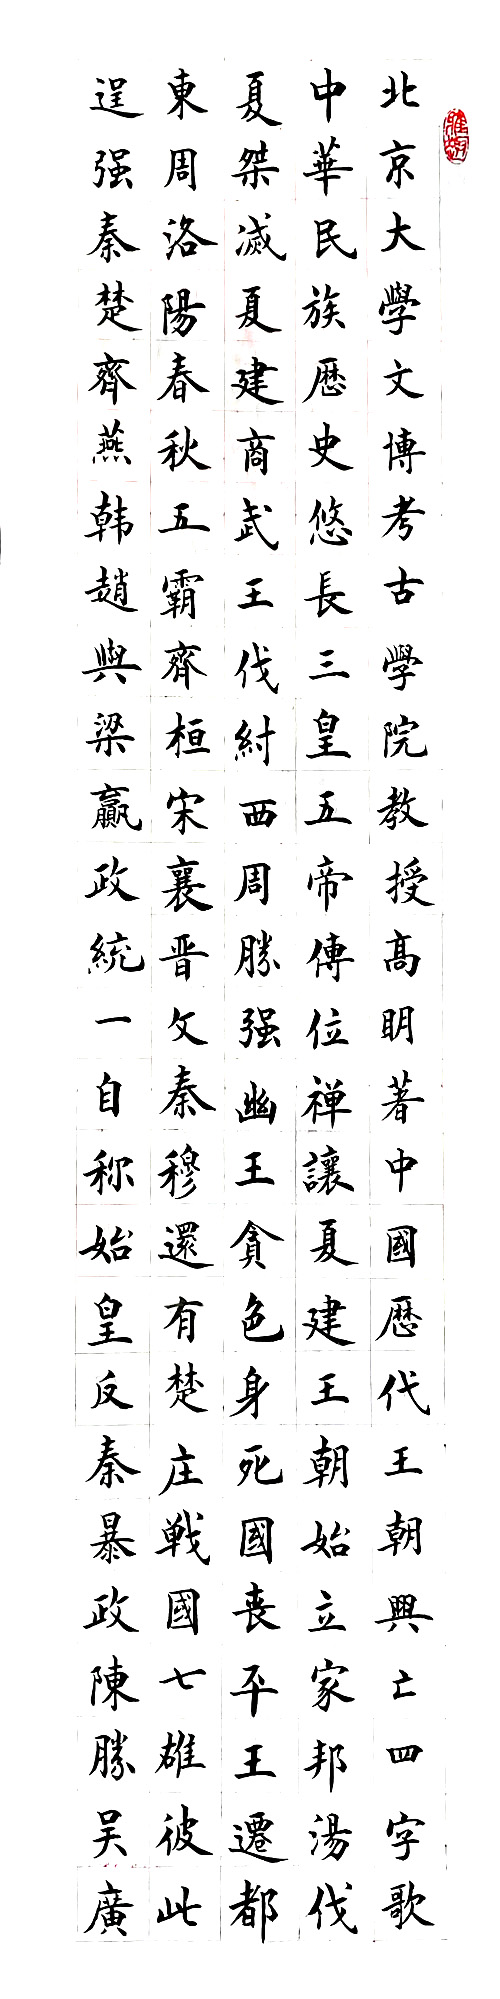 北京大學文博考古學院教授高明著中國歷代王朝興亡四字歌
中華民族歷史悠長三皇五帝傳位禅讓夏建王朝始立家邦湯伐
夏桀滅夏建商武王伐紂西周勝强幽王貪色身死國丧平王遷都
東周洛陽春秋五霸齊桓宋襄晋文秦穆還有楚庄戦國七雄彼此
逞强秦楚齊燕韩趙與梁贏政統一自称始皇反秦暴政陳勝吴廣